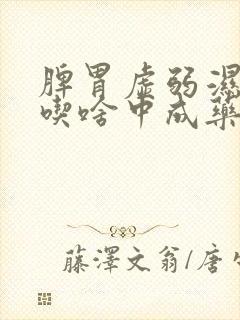 脾胃虚弱濕
喫啥中成藥
藤澤文翁/唐